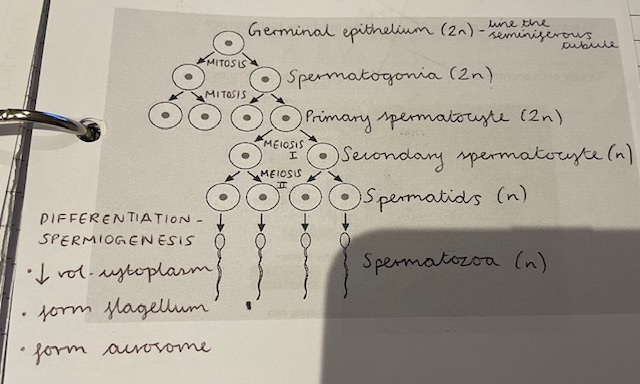 Germinal epithelium (2n) - line the
seminiferous
tubule
MITOSIS
Spermatogonia (2n)
MITOSIS
Primary spermatocyte (2n)
MEIOSIS
I
Secondary spermatocyte (n)
MEIOSIS
II
Spermatids (n)
DIFFERENTIATION -
SPERMIOGENESIS
• ↓ vol. cytoplasm
• form flagellum
• form acrosome
Spermatozoa (n)